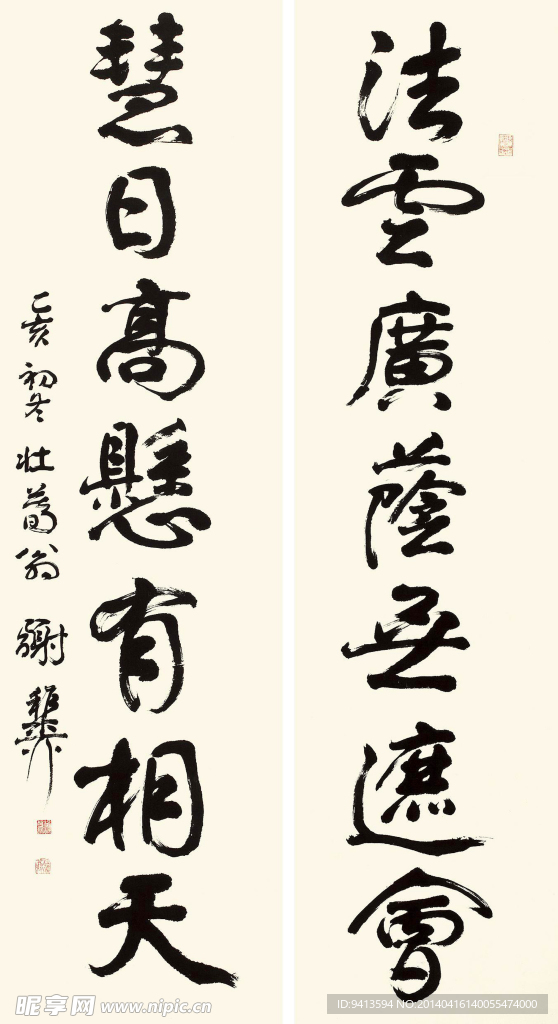 法雲廣蔭無遮會
慧日高懸有相天
乙亥初冬壯蕁翁謝稚
昵享网 www.nipic.cn
ID:9413594 NO:20140416140055474000